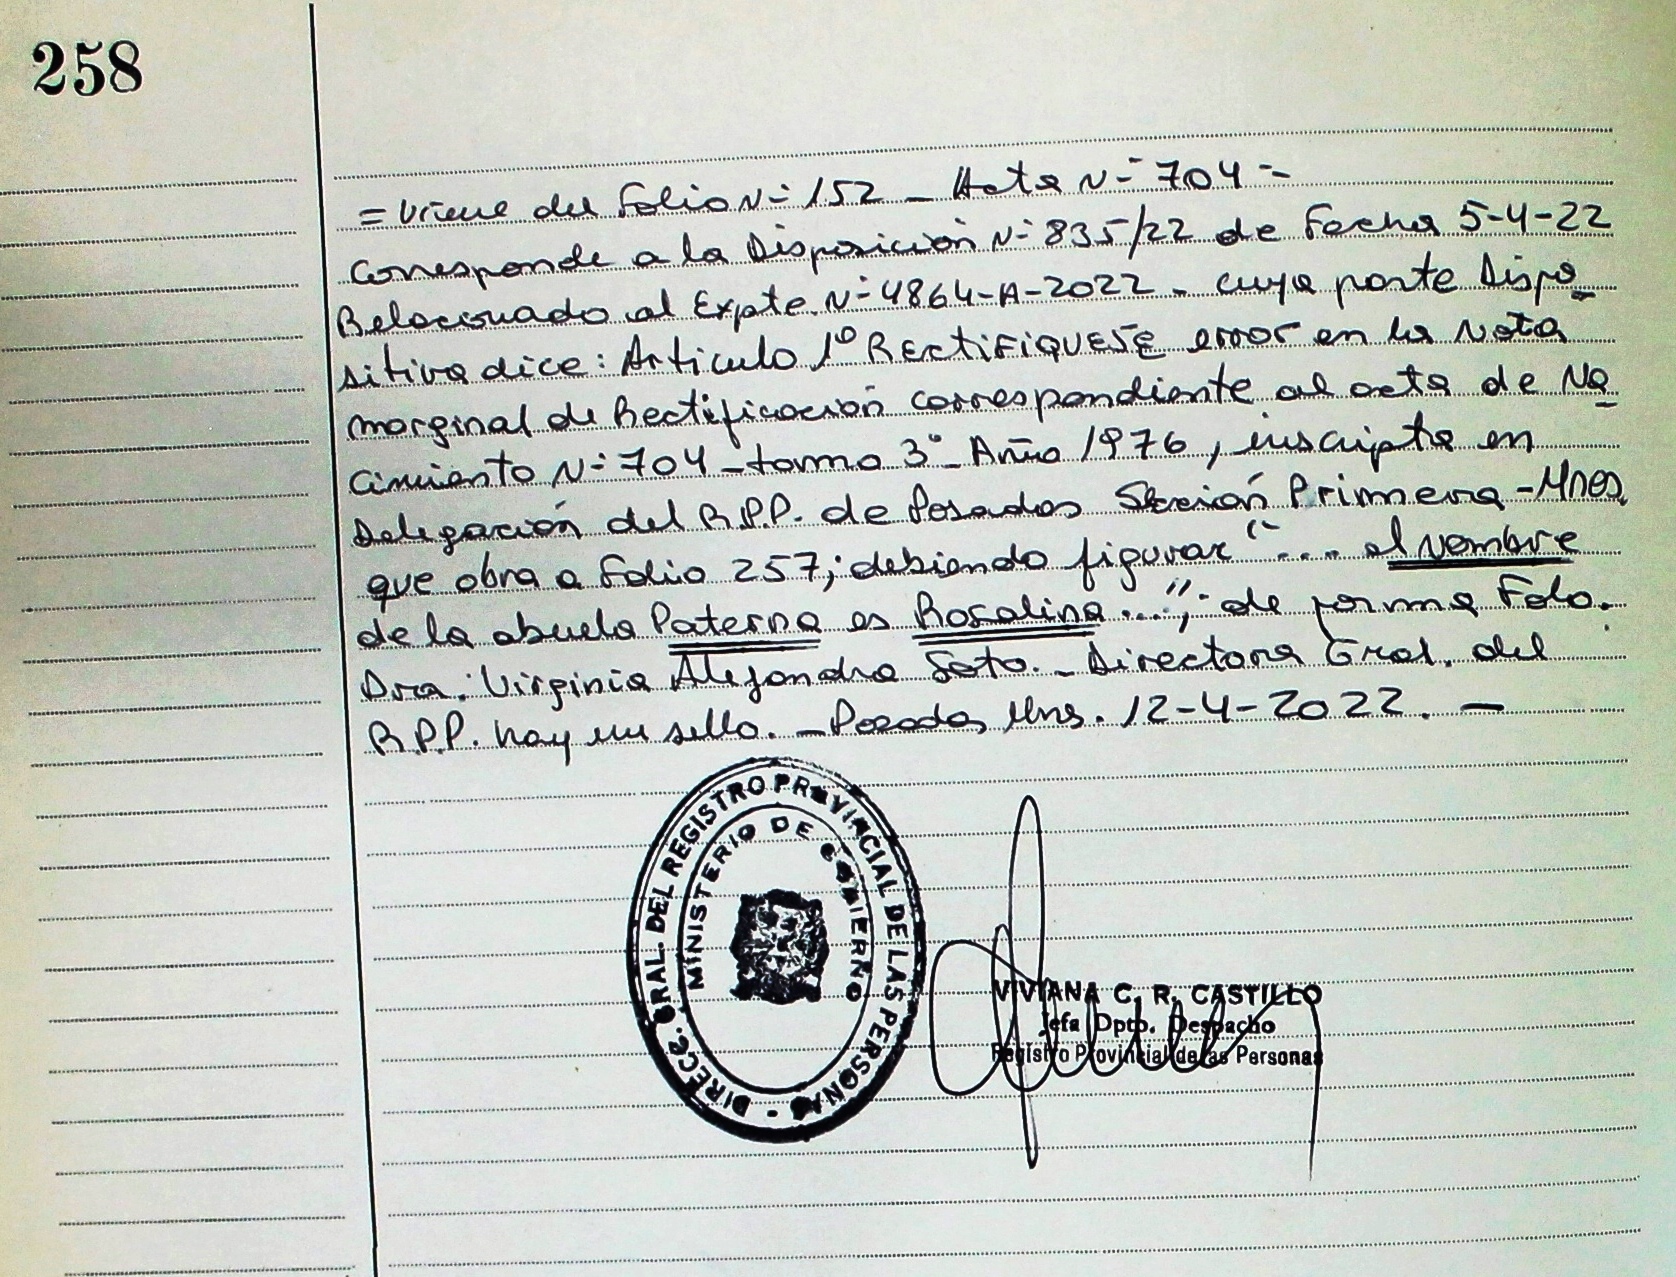 258
= Viene del Folio N- 152 - Acta N- 704 -
Corresponde a la Disposición N- 835/22 de Fecha 5-4-22
Relacionado al Expte. N- 4864-A-2022 - cuya parte Dispo-
sitiva dice: Artículo 1º RECTIFIQUESE error en la Nota
marginal de Rectificación correspondiente al acta de Na-
cimiento N- 704 - tomo 3º - Año 1976, inscripta en
Delegación del R.P.P. de Posadas Sección Primera - Mnes.
que obra a Folio 257; debiendo figurar "... el Nombre
de la abuela Paterna es Rosalina...";- de forma Fdo.
Dra. Virginia Alejandra Soto. - Directora Gral. del
R.P.P. hay un sello. - Posadas, Mns. 12-4-2022. -
DIRECC. GRAL. DEL REGISTRO PROVINCIAL DE LAS PERSONAS -
MINISTERIO DE GOBIERNO
VIVIANA C. R. CASTILLO
Jefa Dpto. Despacho
Registro Provincial de las Personas